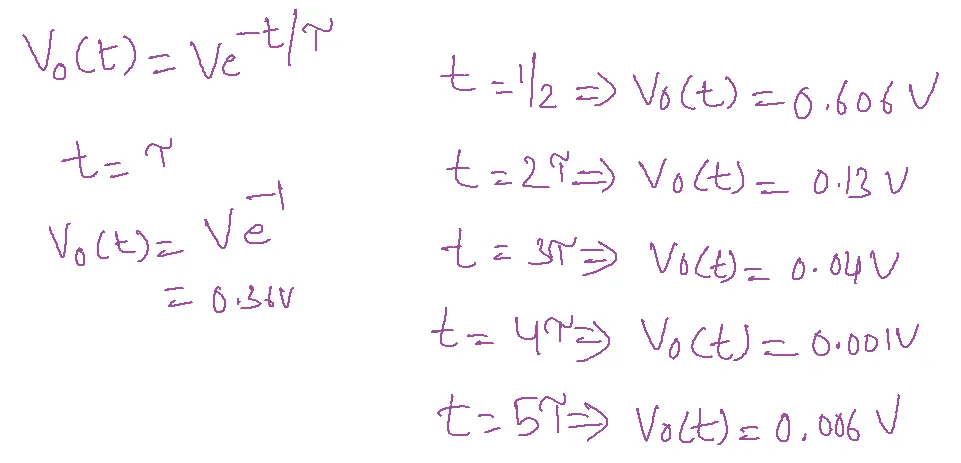 V₀(t) = Ve^{-t/τ}
t = τ
V₀(t) = Ve^{-1}
= 0.36V
t = 1/2 ⇒ V₀(t) = 0.606 V
t = 2τ ⇒ V₀(t) = 0.13 V
t = 3τ ⇒ V₀(t) = 0.04 V
t = 4τ ⇒ V₀(t) = 0.001V
t = 5τ ⇒ V₀(t) = 0.006 V